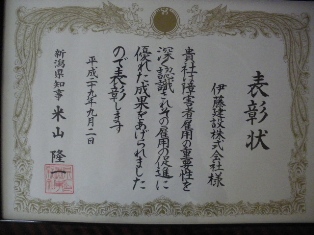 表彰状
伊藤建設株式会社様
貴社は障害者雇用の重要性を
深く認識されその雇用の促進に
優れた成果をあげられました
ので表彰します
平成二十九年九月二日
新潟県知事 米山隆一